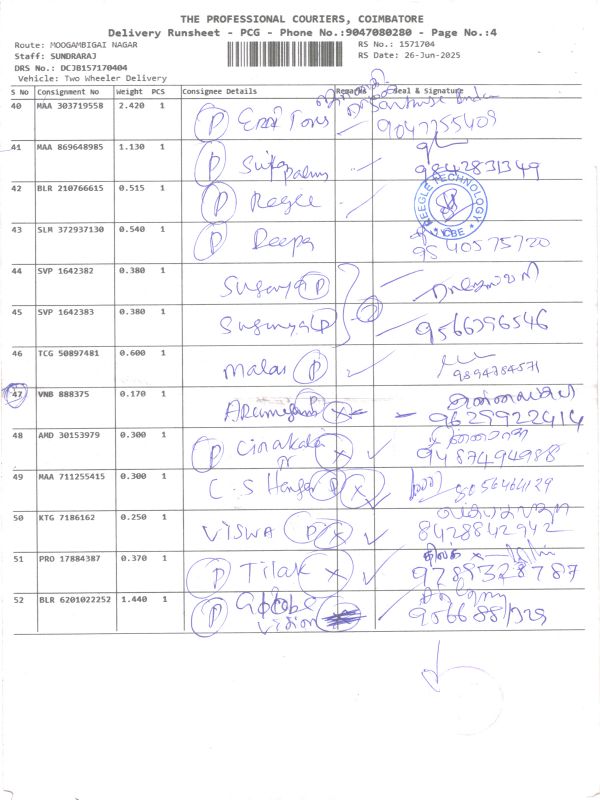 THE PROFESSIONAL COURIERS, COIMBATORE
Delivery Runsheet - PCG - Phone No.:9047080280 - Page No.:4
Route: MOOGAMBIGAI NAGAR
RS No.: 1571704
Staff: SUNDRARAJ
RS Date: 26-Jun-2025
DRS No.: DCJB157170404
Vehicle: Two Wheeler Delivery
S No Consignment No Weight PCS Consignee Details Remarks Seal & Signature
40 MAA 303719558 2.420 1 P
9047755409
41 MAA 869648985 1.130 1 P
9842831349
42 BLR 210766615 0.515 1 P Reegle
REEGLE TECHNOLOGY CBE
43 SLM 372937130 0.540 1 P Deepa
9540575720
44 SVP 1642382 0.380 1 Suganya P
45 SVP 1642383 0.380 1 Suganya P 2
9566796546
46 TCG 50897481 0.600 1 Malar P
9894784571
47 VNB 888375 0.170 1 Arumugam P X
9629922414
48 AMD 30153979 0.300 1 P X
9487494988
49 MAA 711255415 0.300 1 C.S P X
9056464129
50 KTG 7186162 0.250 1 VISWA P X
8428842942
51 PRO 17884387 0.370 1 P Tilak X
9789328787
52 BLR 6201022252 1.440 1 P Vision